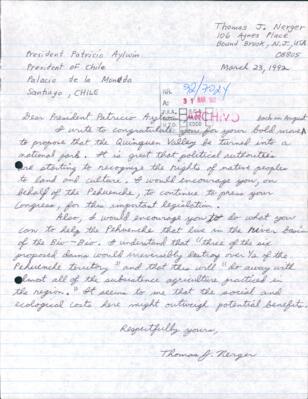 Thomas J. Nerger
106 Agnes Place
Bound Brook, N.J., USA
08805
President Patricio Aylwin
President of Chile
March 23, 1992
Palacio de la Moneda
Santiago, CHILE
92/7024
31 MAR 92
ARCHIVO
Dear President Patricio Aylwin,
back in August
I write to congratulate you for your bold move
to propose that the Quinquen Valley be turned into a
national park. It is great that political authorities
are starting to recognize the rights of native peoples
to land and culture. I would encourage you, on
behalf of the Pehuenche, to continue to press your
congress, for this important legislation.
Also, I would encourage you to do what you
can to help the Pehuenche that live in the river basin
of the Bio-Bio. I understand that "three of the six
proposed dams would irreversibly destroy over ½ of the
Pehuenche territory" and that this will "do away with
almost all of the subsistence agriculture practiced in
the region." It seems to me that the social and
ecological costs here might outweigh potential benefits.
Respectfully yours,
Thomas J. Nerger